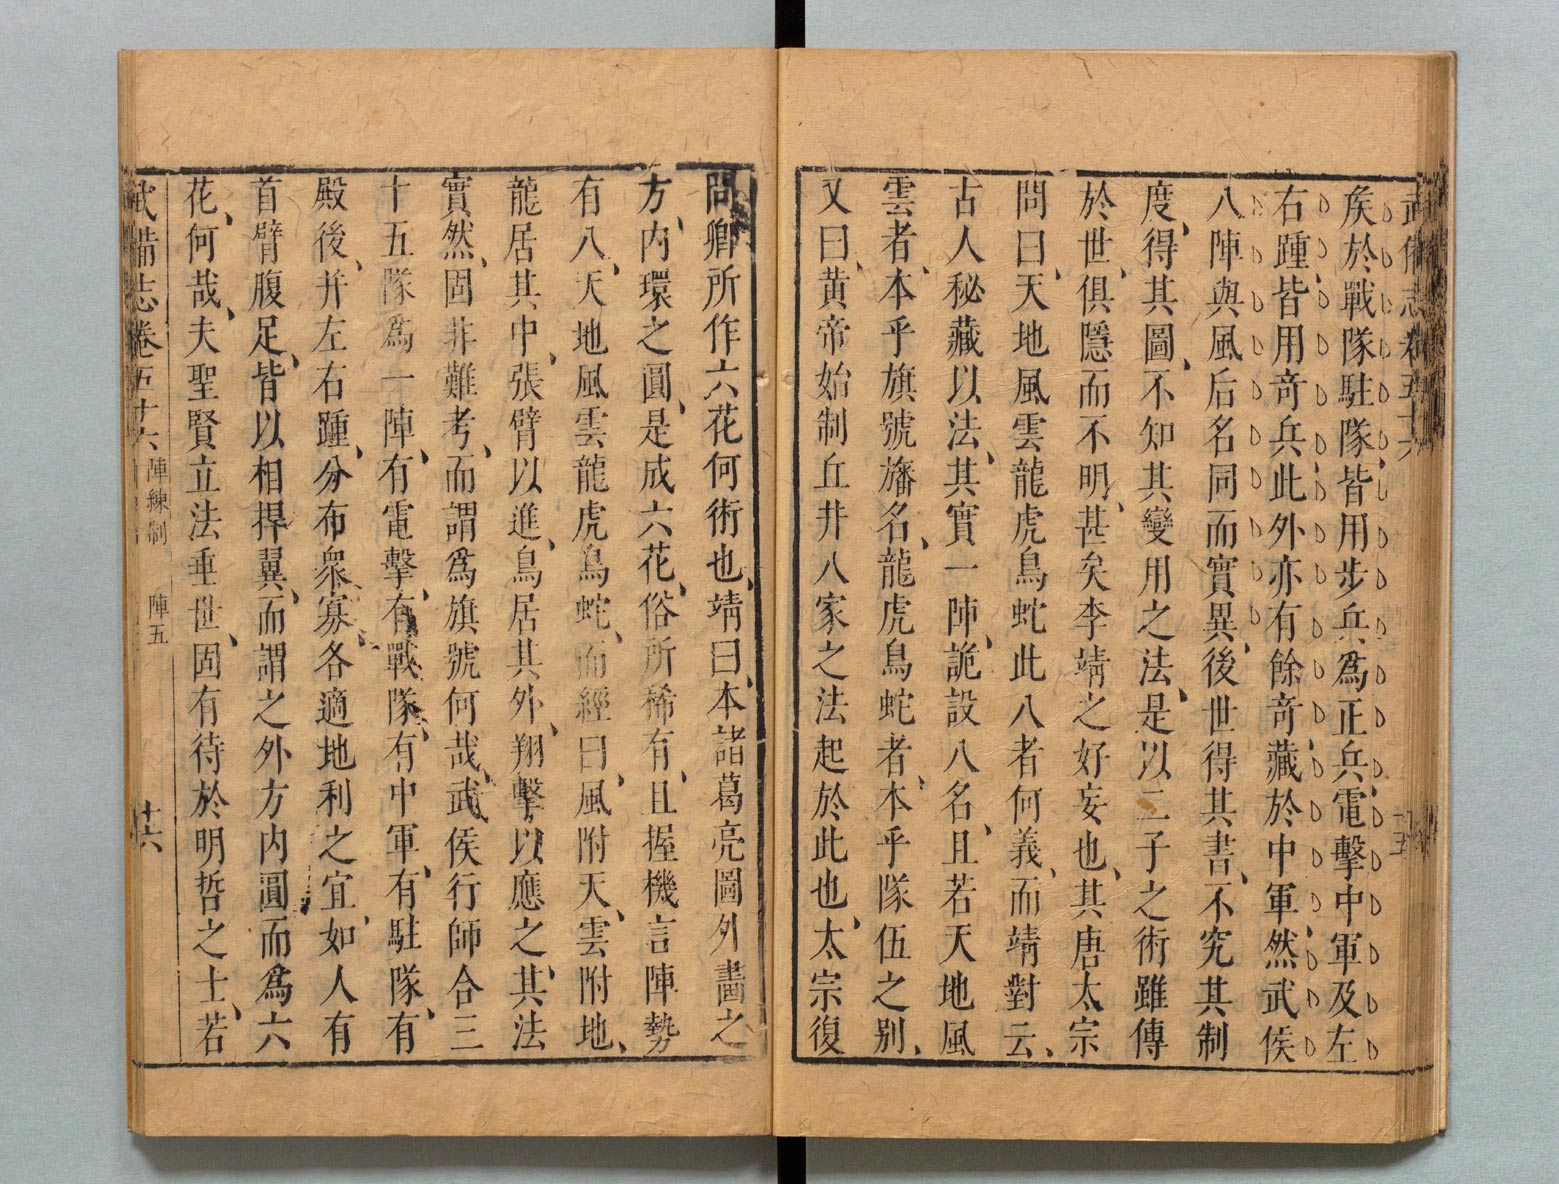 武備志卷五十六
十五
矦於戰隊駐隊皆用步兵爲正兵電擊中軍及左
右踵皆用竒兵此外亦有餘竒藏於中軍然武侯
八陣與風后名同而實異、後世得其書、不究其制
度、得其圖、不知其變用之法、是以二子之術雖傳
於世、俱隱而不明、甚矣李靖之好妄也、其唐太宗
問曰、天地風雲龍虎鳥蛇此八者何義、而靖對云、
古人秘藏以法、其實一陣、詭設八名、且若天地風
雲者、本乎旗號旛名、龍虎鳥蛇者、本乎隊伍之别、
又曰、黄帝始制丘井八家之法起於此也、太宗復
問卿所作六花何術也、靖曰、本諸葛亮圖外畫之
方、内環之圓、是成六花、俗所稀有、且握機言陣勢
有八、天地風雲龍虎鳥蛇、而經曰、風附天、雲附地、
龍居其中、張臂以進、鳥居其外、翔擊以應之、其法
實然、固非難考、而謂爲旗號何哉、武侯行師合三
十五隊爲一陣、有電擊、有戰隊、有中軍、有駐隊、有
殿後、并左右踵、分布衆寡、各適地利之宜、如人有
首臂腹足、皆以相捍翼、而謂之外方内圓而爲六
花、何哉、夫聖賢立法垂世、固有待於明哲之士、若
武備志卷五十六 陣練制 陣五
十六